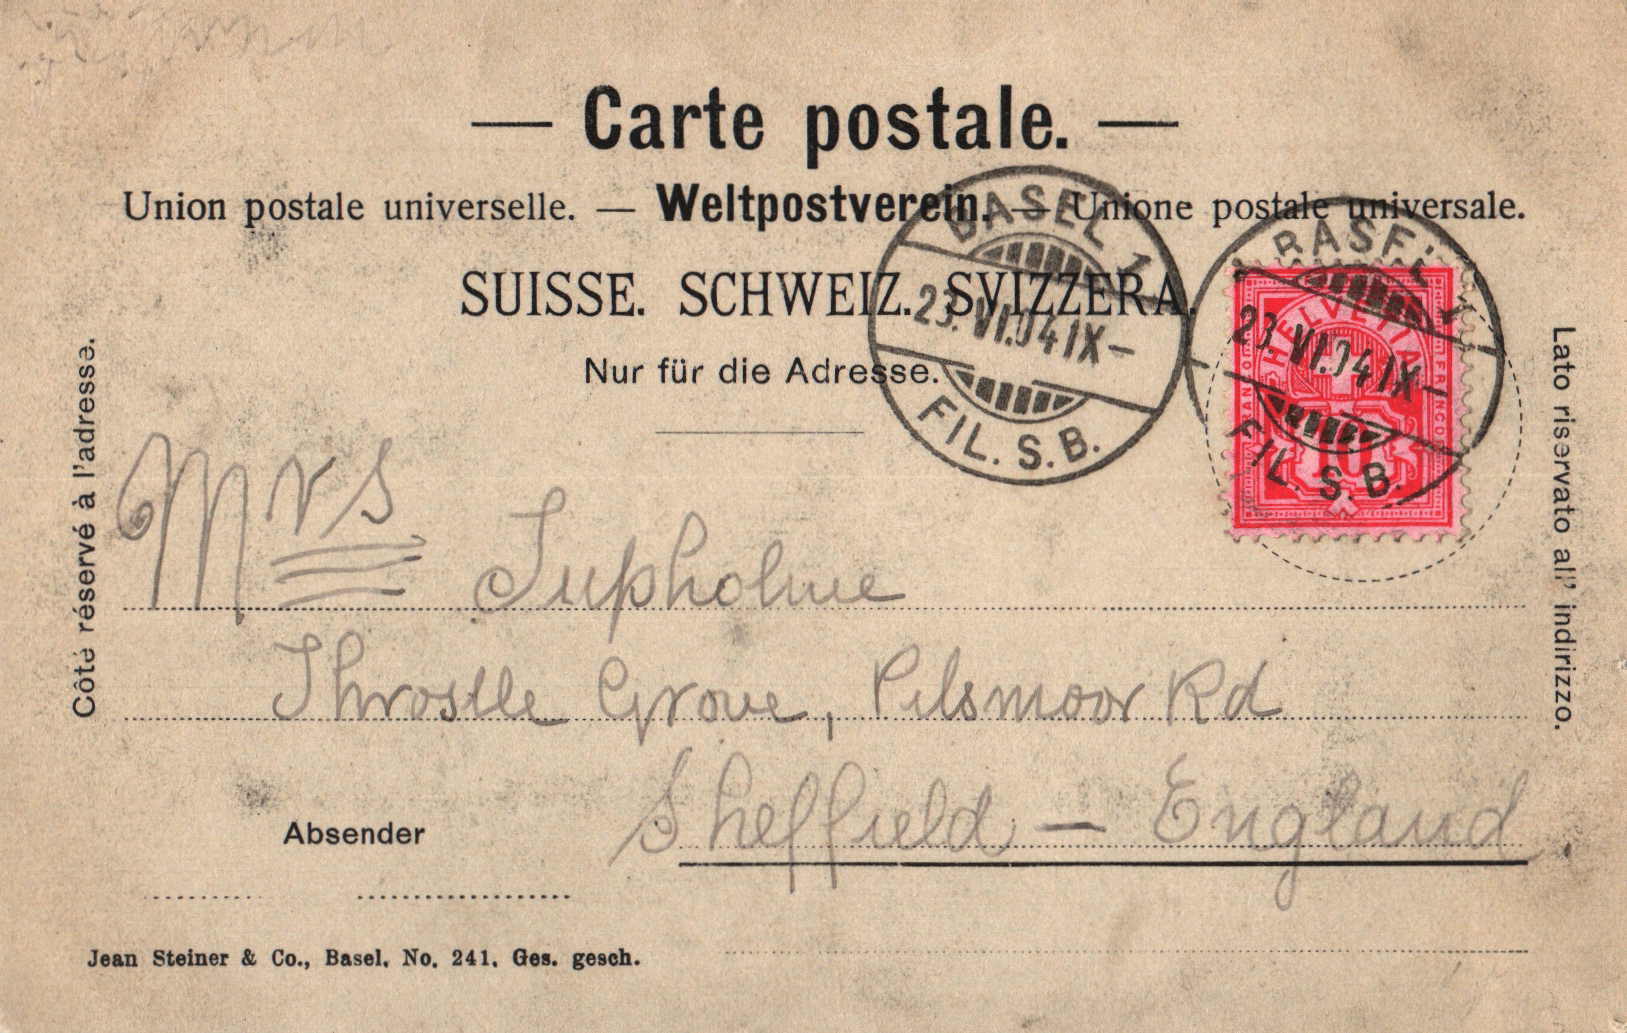 — Carte postale. —
Union postale universelle. — Weltpostverein. — Unione postale universale.
SUISSE. SCHWEIZ. SVIZZERA.
Nur für die Adresse.
BASEL 1
23.VI.04 IX–
FIL. S. B.
BASEL 1
23.VI.04 IX–
FIL. S. B.
HELVETIA
FRANCO
10
Côté réservé à l'adresse.
Lato riservato all' indirizzo.
Mrs Jupholme
Throstle Grove, Pilsmoor Rd
Sheffield — England
Absender
Jean Steiner & Co., Basel. No. 241. Ges. gesch.